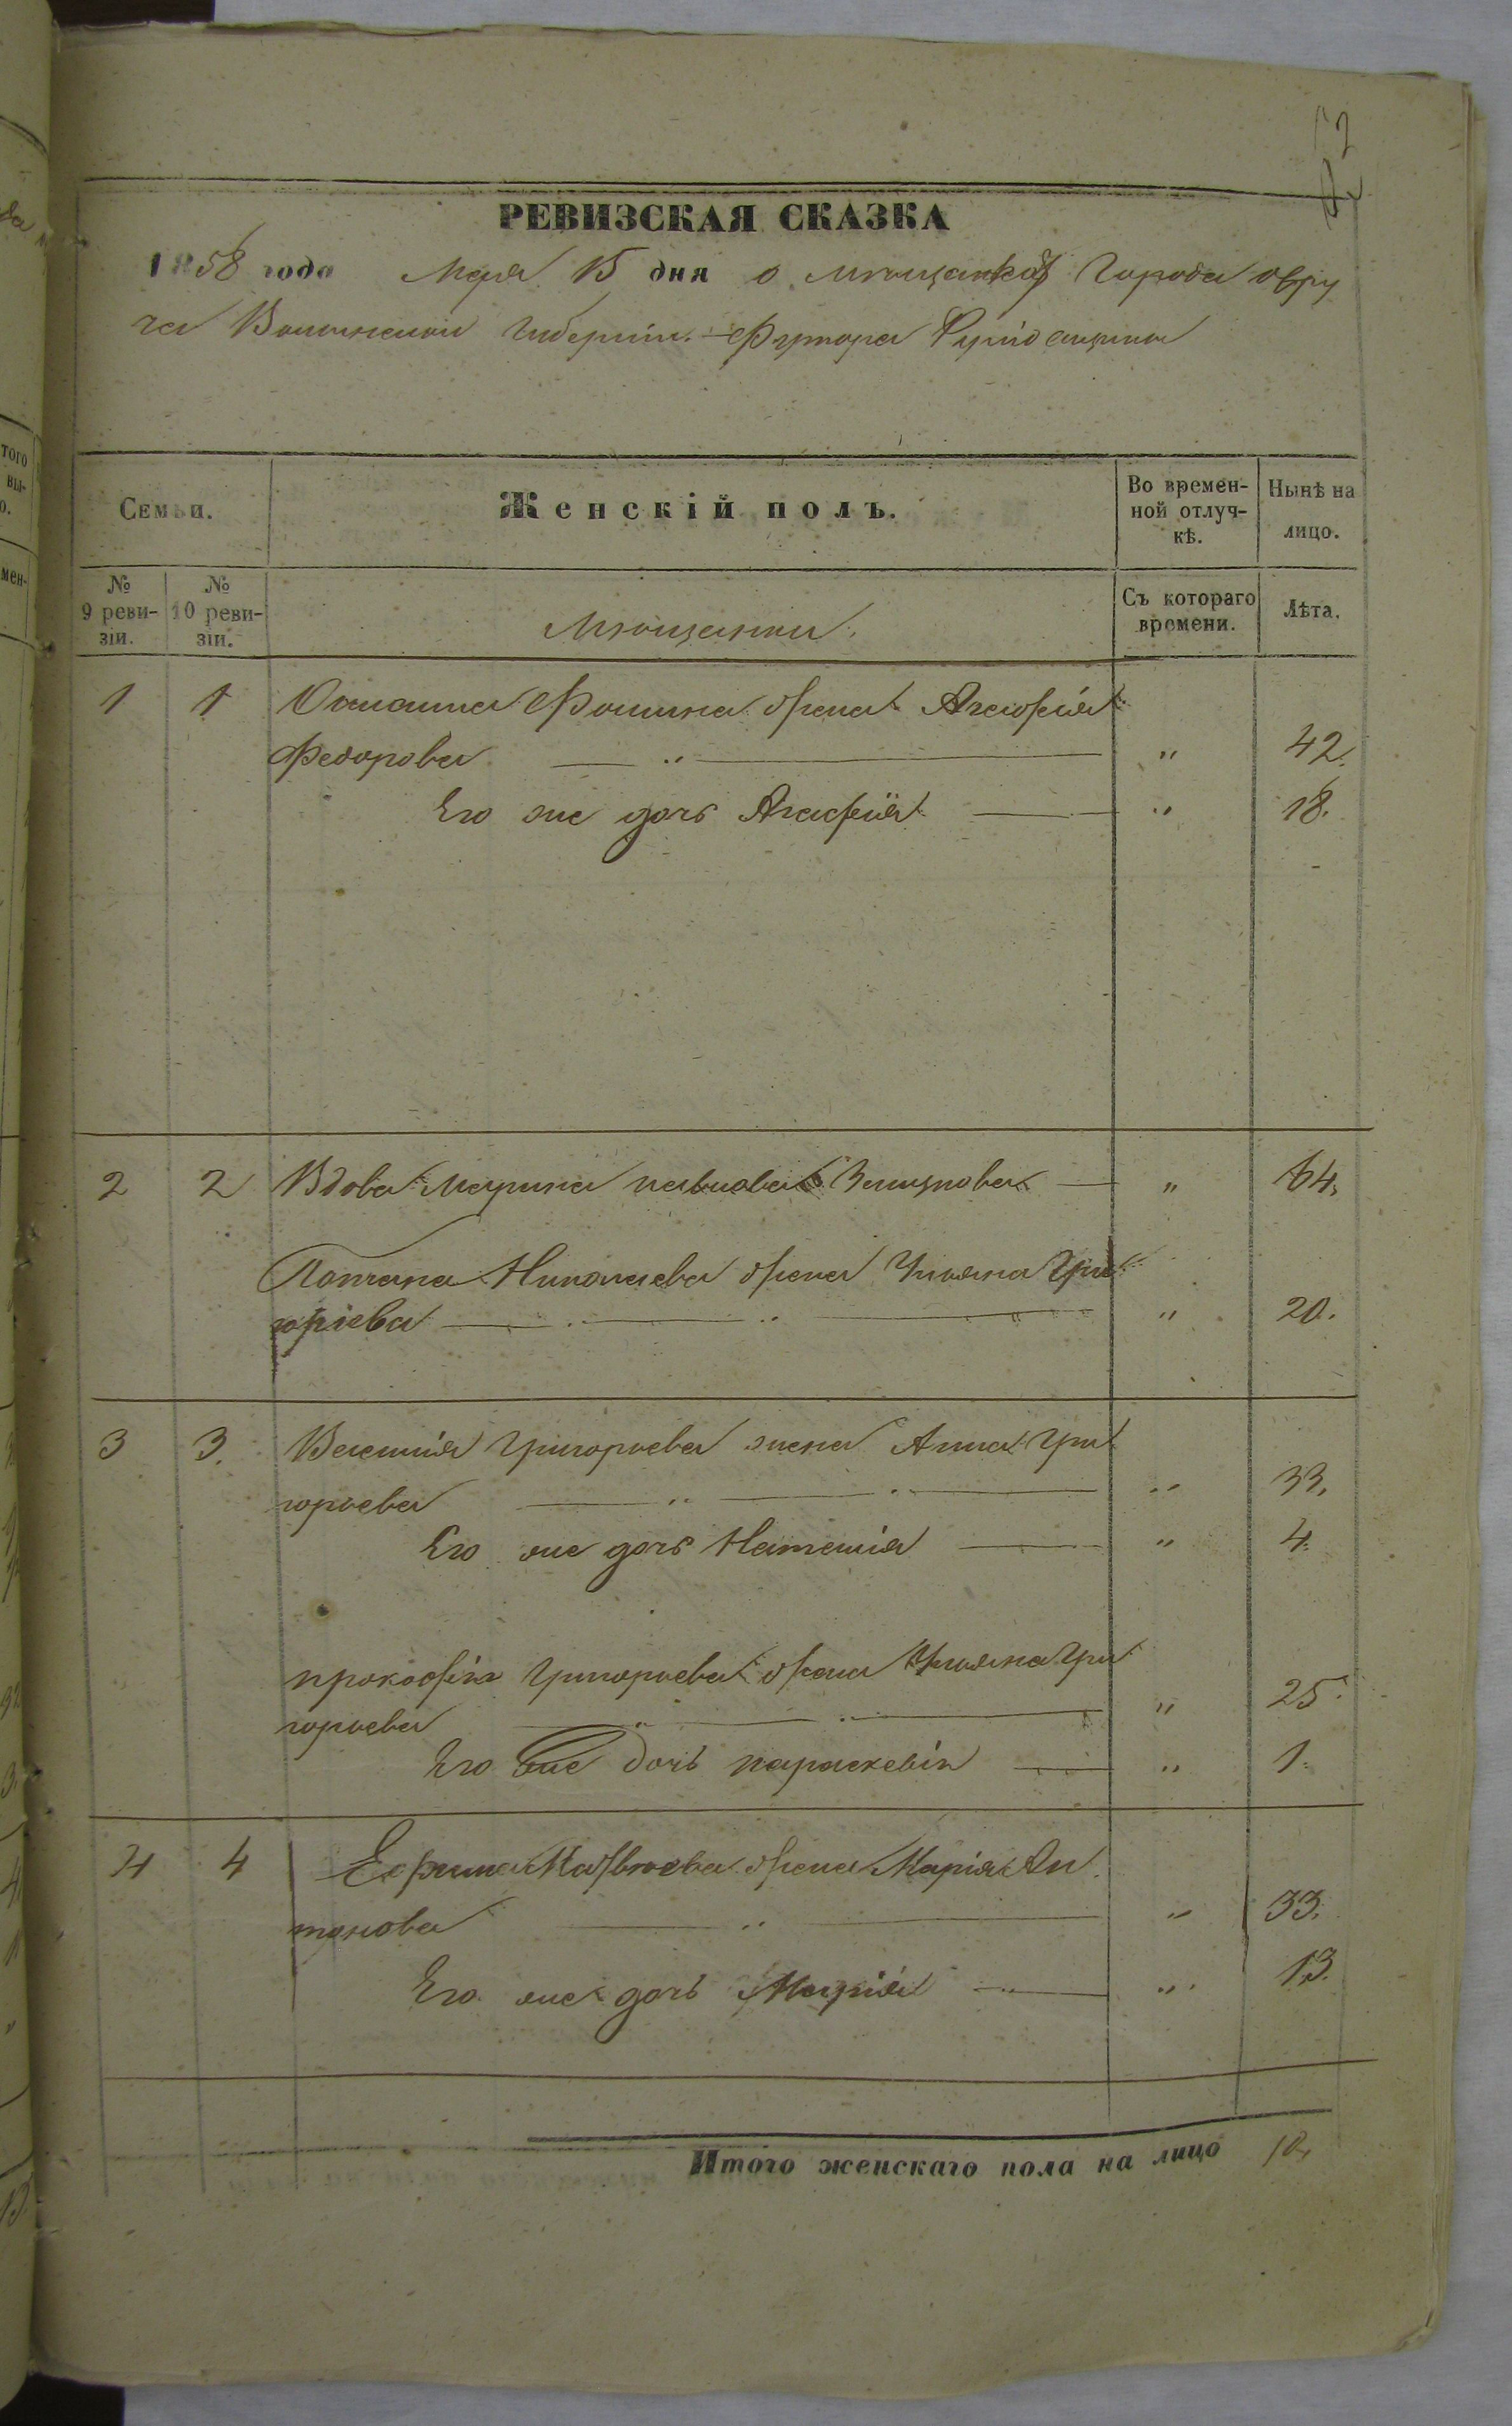 РЕВИЗСКАЯ СКАЗКА
1858 года Мая 15 дня о мѣщанкахъ Города Овру
ча Волынской Губерніи. Футора
Семьи.
Женскій полъ.
Во времен-
ной отлуч-
кѣ.
Нынѣ на
лицо.
№
9 реви-
зіи.
№
10 реви-
зіи.
Мѣщанки.
Съ котораго
времени.
Лѣта.
1 1 Фомина жена Агафія
Федорова " 42.
Его же дочь Агафія " 18.
2 2 Вдова Марина Павлова " 64.
Николаева жена Ульяна Гри
горіева " 20.
3 3. Григорьева жена Анна Гри
горьева " 33.
Его же дочь Наталія " 4.
Прокофія Григорьева жена Ульяна Гри
горьева " 25.
Его же дочь Параскевія " 1.
4 4 Ефима Матвѣева жена Марія Ан
тонова " 33.
Его же дочь Марія " 13.
Итого женскаго пола на лицо 10.